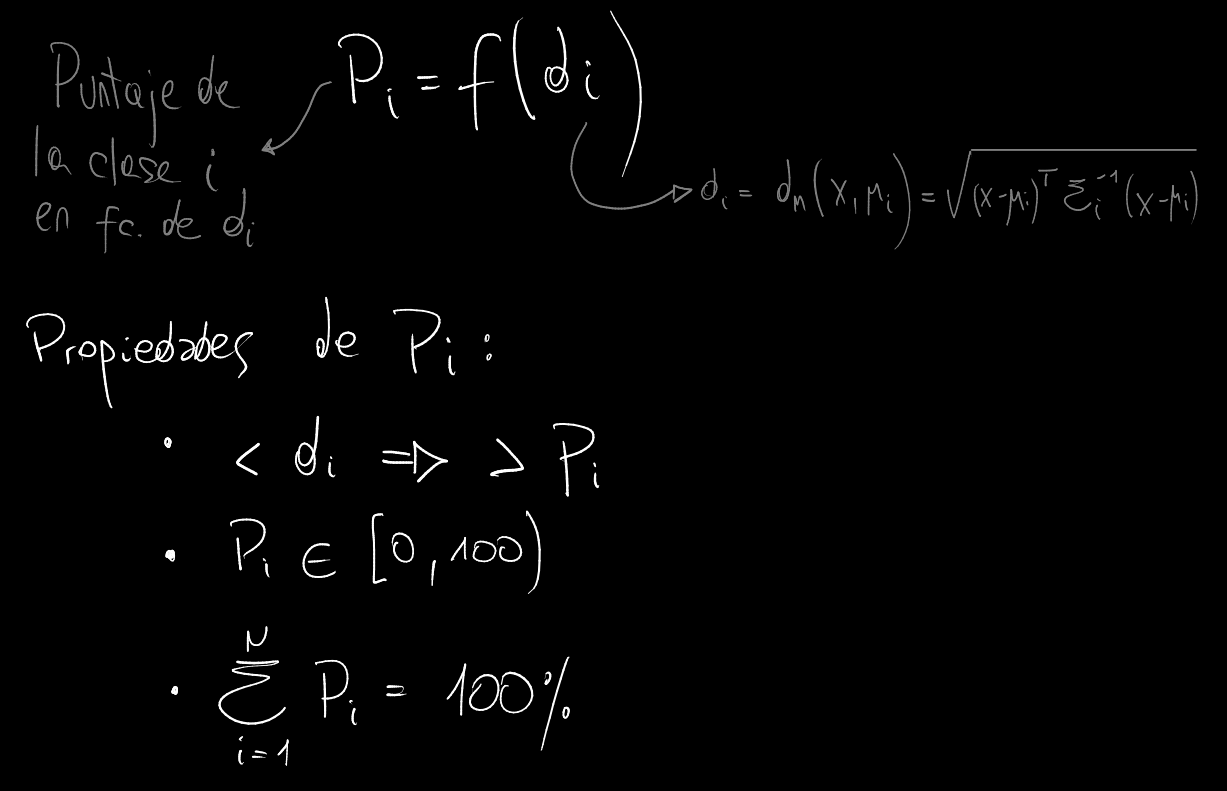 P_i = f(d_i)
Puntaje de
la clase i
en fc. de d_i
d_i = d_M(x, μ_i) = √((x-μ_i)^T Σ_i^-1 (x-μ_i))
Propiedades de P_i :
• < d_i ⇒ > P_i
• P_i ∈ [0, 100)
• Σ_{i=1}^{N} P_i = 100%